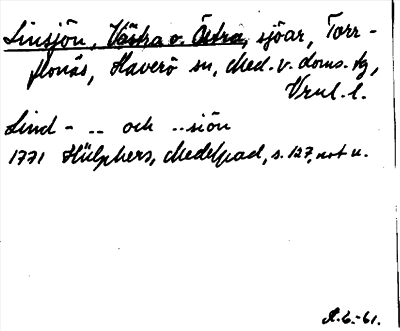 Linsjön, Västra o. Östra, sjöar, Torr-
flonäs, Haverö sn, Med. v. doms. tg,
Vrnl. l.
Lind- .. och ..siön
1771 Hülphers, Medelpad, s. 127, not u.
R.6.-61.